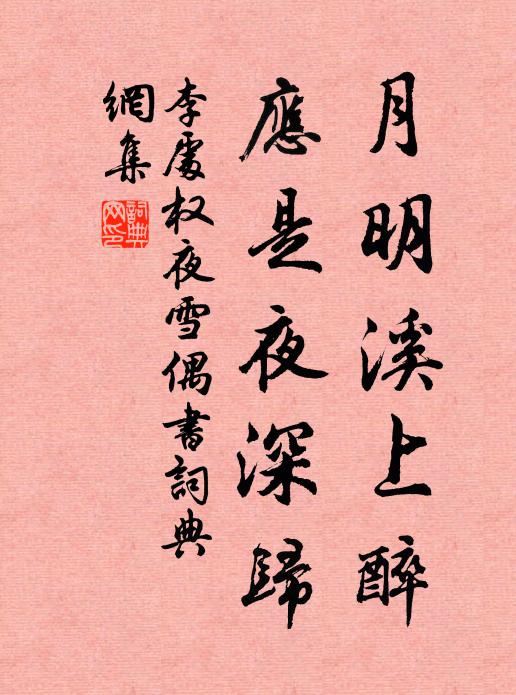 月明溪上醉
應是夜深歸
李處权夜雪偶書詞典
網集
詞典網印